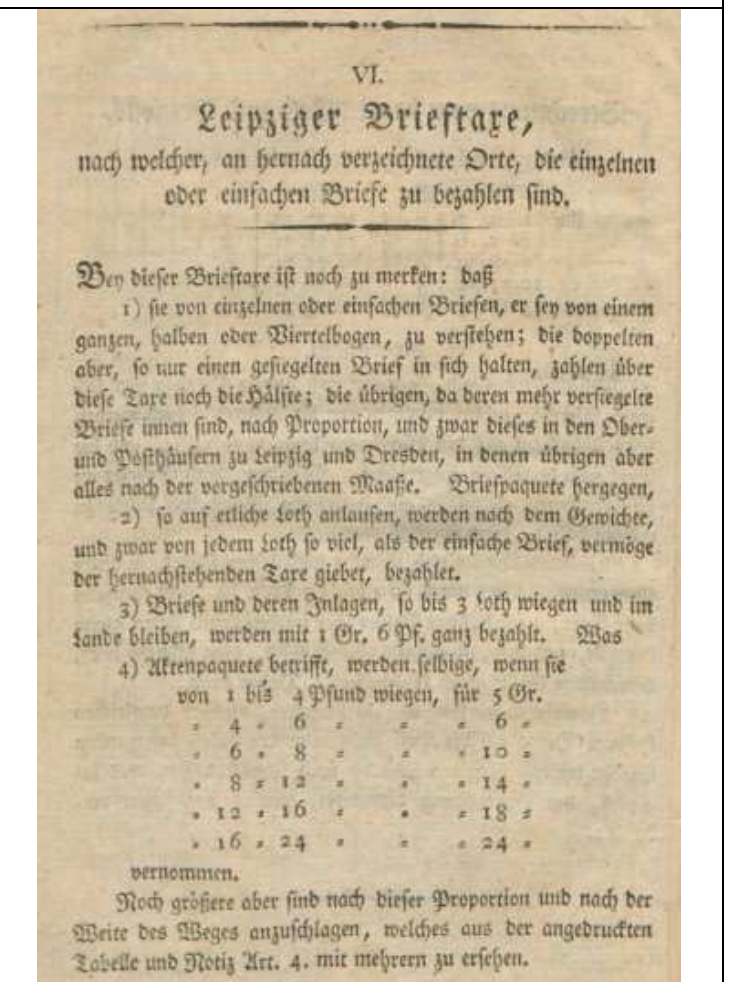 VI.
Leipziger Brieftaxe,
nach welcher, an hernach verzeichnete Orte, die einzelnen
oder einfachen Briefe zu bezahlen sind.
Bey dieser Brieftaxe ist noch zu merken: daß
1) sie von einzelnen oder einfachen Briefen, er sey von einem
ganzen, halben oder Viertelbogen, zu verstehen; die doppelten
aber, so nur einen gesiegelten Brief in sich halten, zahlen über
diese Taxe noch die Hälfte; die übrigen, da deren mehr versiegelte
Briefe innen sind, nach Proportion, und zwar dieses in den Ober-
und Posthäusern zu Leipzig und Dresden, in denen übrigen aber
alles nach der vorgeschriebenen Maaße. Briefpaquete hergegen,
2) so auf etliche Loth anlaufen, werden nach dem Gewichte,
und zwar von jedem Loth so viel, als der einfache Brief, vermöge
der hernachstehenden Taxe giebet, bezahlet.
3) Briefe und deren Inlagen, so bis 3 Loth wiegen und im
Lande bleiben, werden mit 1 Gr. 6 Pf. ganz bezahlt. Was
4) Aktenpaquete betrifft, werden selbige, wenn sie
von 1 bis 4 Pfund wiegen, für 5 Gr.
= 4 = 6 = = = 6 =
= 6 = 8 = = = 10 =
= 8 = 12 = = = 14 =
= 12 = 16 = = = 18 =
= 16 = 24 = = = 24 =
vernommen.
Noch größere aber sind nach dieser Proportion und nach der
Weite des Weges anzuschlagen, welches aus der angedruckten
Tabelle und Notiz Art. 4. mit mehrern zu ersehen.